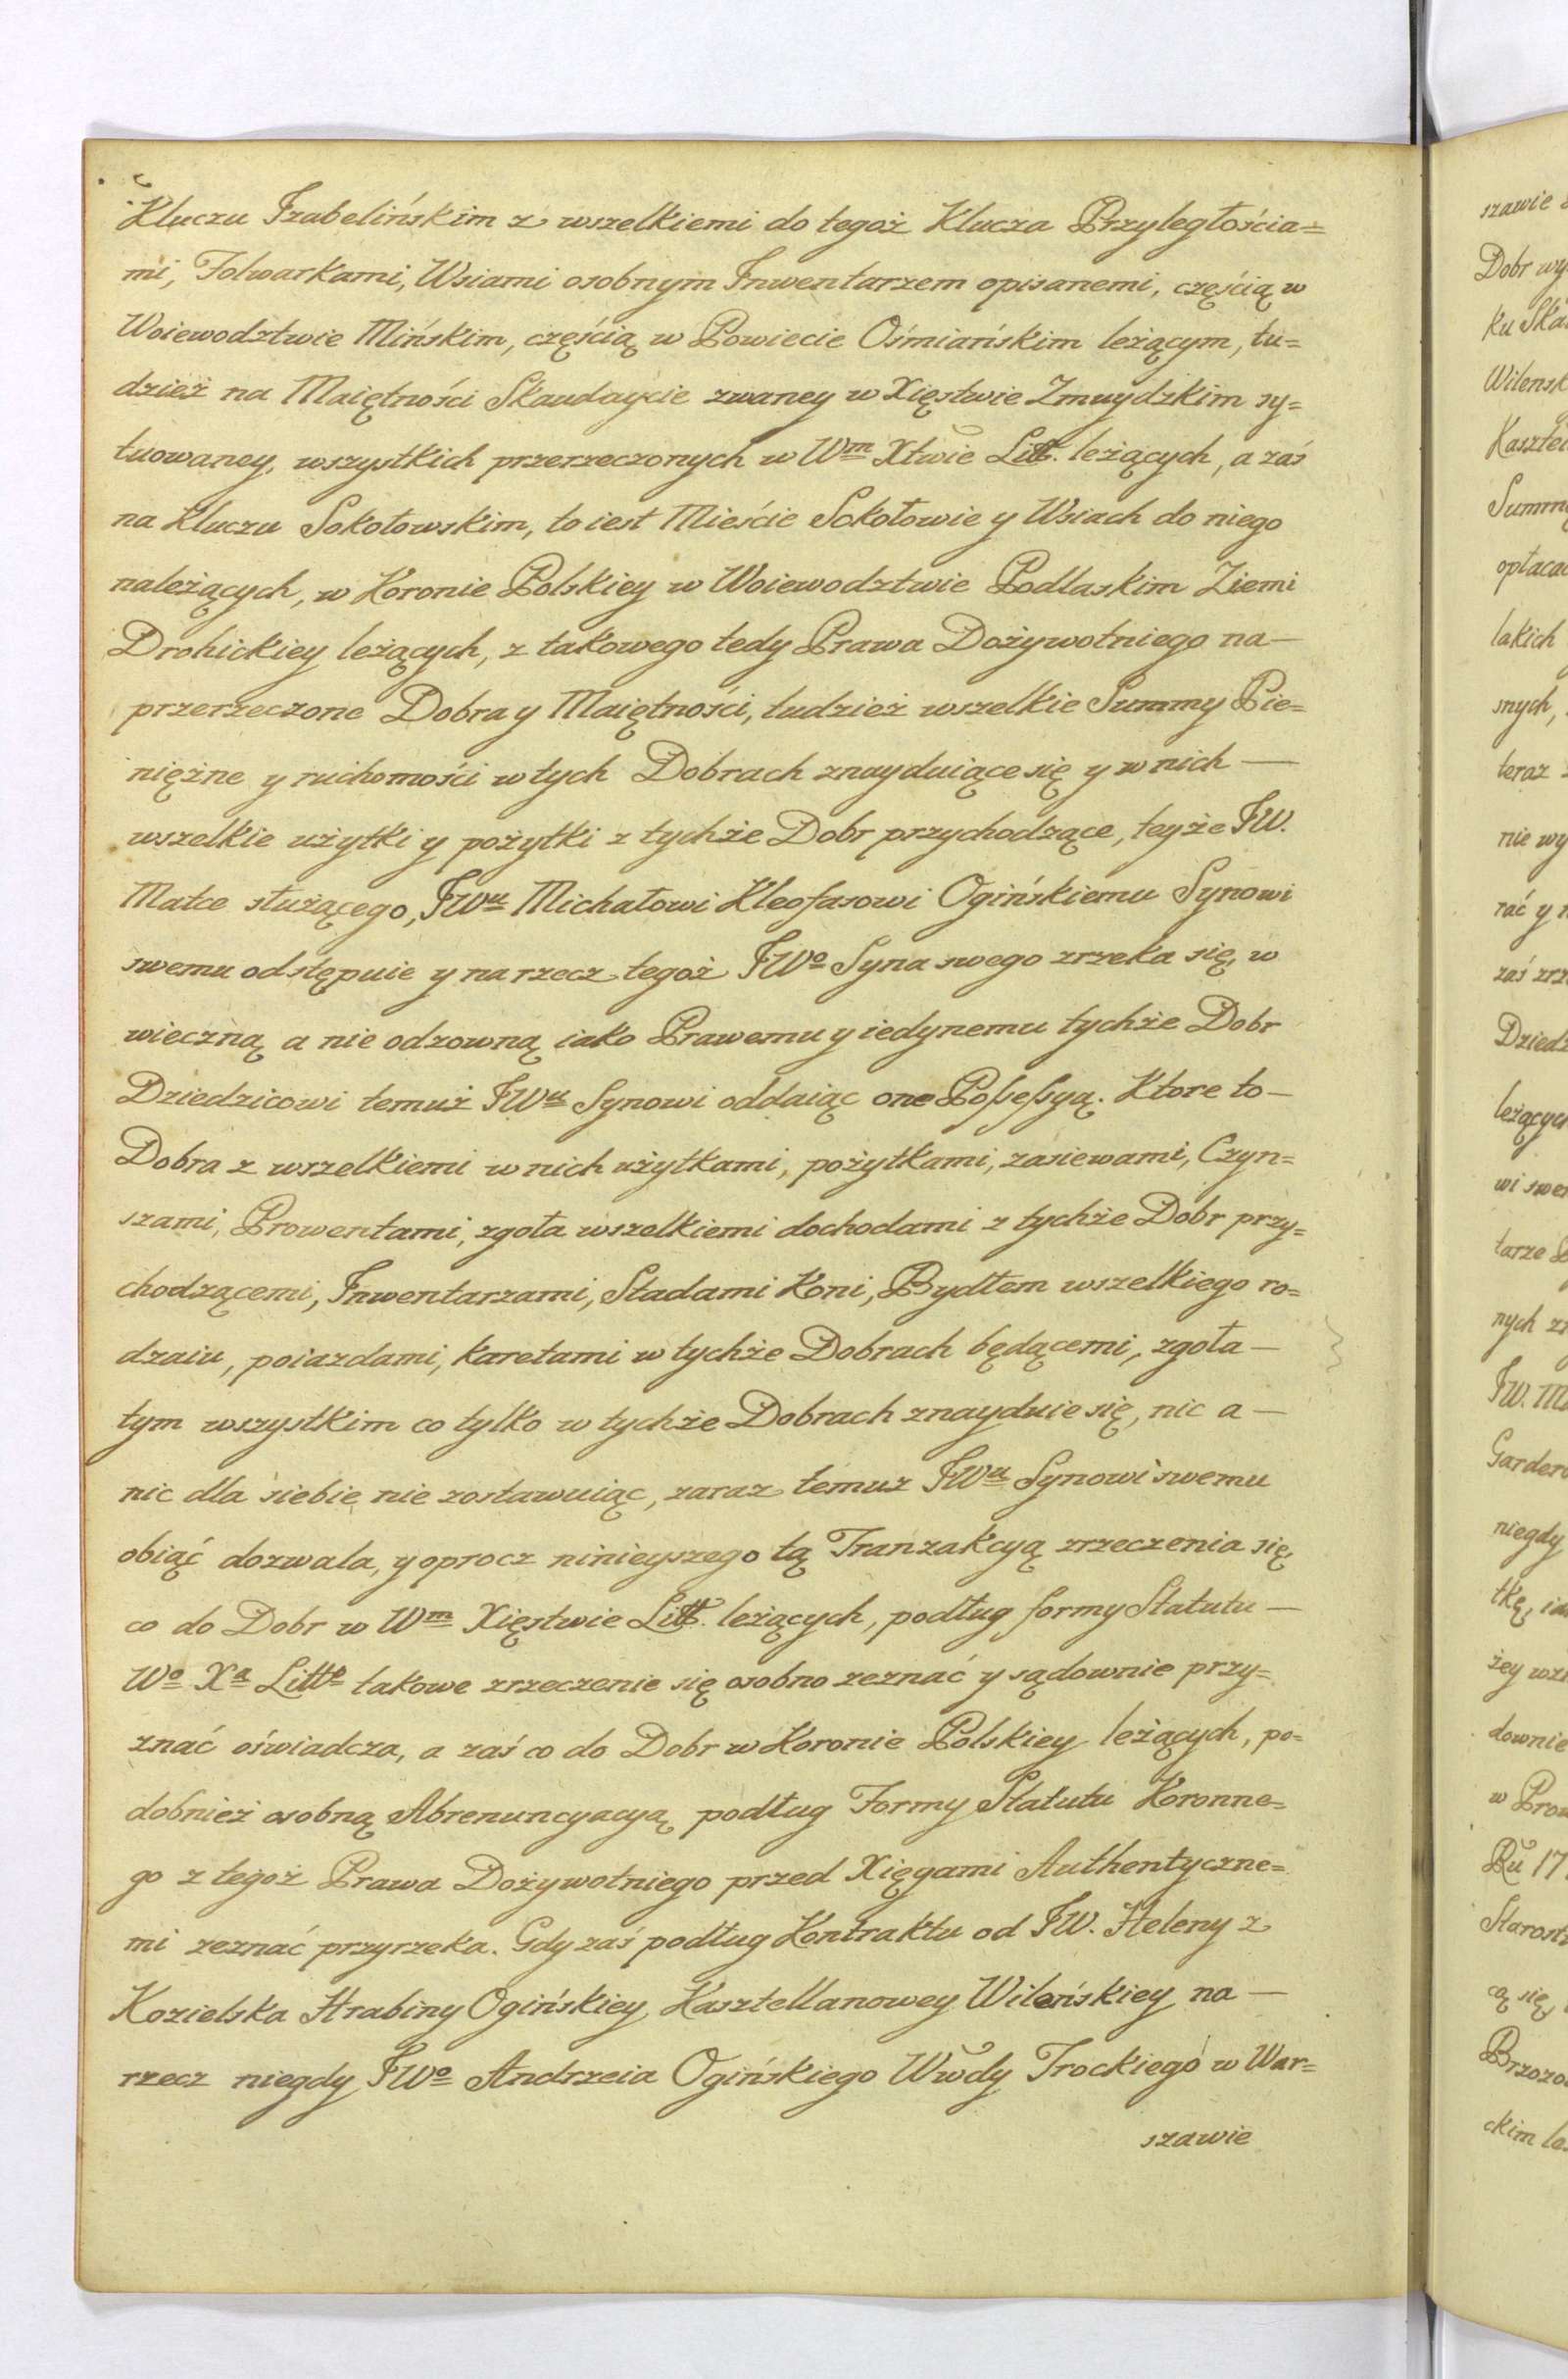 Kluczu Izabelińskim z wszelkiemi do tegoż Klucza Przyległościa=
mi, Folwarkami, Wsiami osobnym Inwentarzem opisanemi, częścią w
Woiewodztwie Mińskim, częścią w Powiecie Ośmiańskim leżącym, tu=
dzież na Maiętności Skaudaycie zwaney w Xięstwie Zmuydzkim sy=
tuowaney, wszystkich przerzeczonych w Wm Xtwie Litt. leżących, a zaś
na Kluczu Sokołowskim, to iest Mieście Sokołowie y Wsiach do niego
należących, w Koronie Polskiey w Woiewodztwie Podlaskim Ziemi
Drohickiey leżących, z takowego tedy Prawa Dożywotniego na—
przerzeczone Dobra y Maiętności, tudzież wszelkie Summy Pie=
niężne y ruchomości w tych Dobrach znayduiące się y w nich —
wszelkie użytki y pożytki z tychże Dobr przychodzące, teyże JW.
Matce służącego, JWu Michałowi Kleofasowi Ogińskiemu Synowi
swemu odstępuie y na rzecz tegoż JWo Syna swego zrzeka się, w
wieczną a nie odzowną iako Prawemu y iedynemu tychże Dobr
Dziedzicowi temuż JWu Synowi oddaiąc one Possessyą. Ktore to—
Dobra z wszelkiemi w nich użytkami, pożytkami, zasiewami, Czyn=
szami, Prowentami, zgoła wszelkiemi dochodami z tychże Dobr przy=
chodzącemi, Inwentarzami, Stadami Koni, Bydłem wszelkiego ro=
dzaiu, poiazdami, karetami w tychże Dobrach będącemi, zgoła —
tym wszystkim co tylko w tychże Dobrach znayduie się, nic a —
nic dla siebie nie zostawuiąc, zaraz temuz JWu Synowi swemu
obiąć dozwala, y oprocz ninieyszego tą Tranzakcyą zrzeczenia się,
co do Dobr w Wm Xięstwie Litt. leżących, podług formy Statutu —
Wo Xa Litto takowe zrzeczenie się osobno zeznać y sądownie przy=
znać oświadcza, a zaś co do Dobr w Koronie Polskiey leżących, po=
dobnież osobną Abrenuncyacyą podług Formy Statutu Koronne=
go z tegoż Prawa Dożywotniego przed Xięgami Authentyczne=
mi zeznać przyrzeka. Gdy zaś podług Kontraktu od JW. Heleny z
Kozielska Hrabiny Ogińskiey, Kasztellanowey Wileńskiey na —
rzecz niegdy JWo Andrzeia Ogińskiego Wwdy Trockiego w War=
szawie
szawie
Dobr wy
ku Ska
Wilensk
Kasztel
Summ
opłaca
lakich
snych,
teraz
nie wy
rać y
zaś zrz
Dziedz
leżących
wi swe
tarze
nych
JW. M
Garder
niegdy
tkę,
żey
downie
w Pro
Ru 17
Starost
cą się,
Brzozo
ckim le